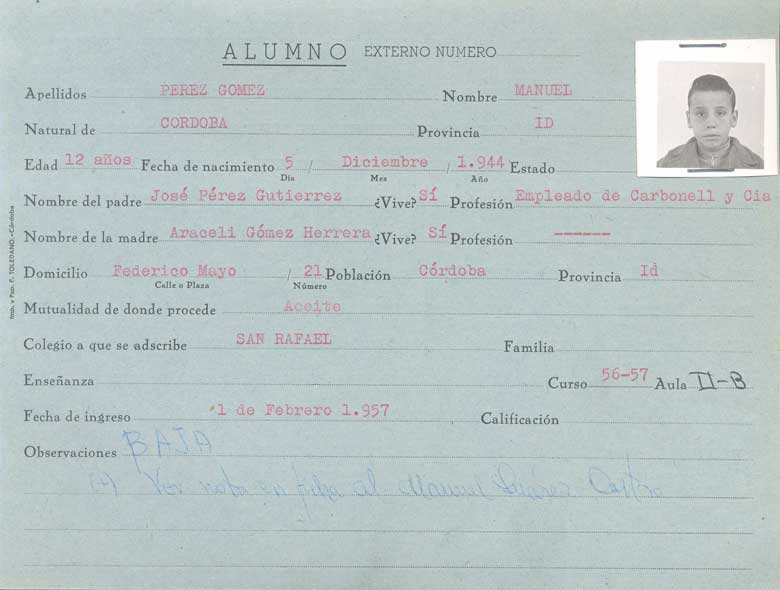 ALUMNO EXTERNO NUMERO
Apellidos PEREZ GOMEZ Nombre MANUEL
Natural de CORDOBA Provincia ID
Edad 12 años Fecha de nacimiento 5 / Diciembre / 1.944 Estado
Día Mes Año
Nombre del padre José Pérez Gutierrez ¿Vive? Sí Profesión Empleado de Carbonell y Cia
Nombre de la madre Araceli Gómez Herrera ¿Vive? Sí Profesión ------
Domicilio Federico Mayo / 21 Población Córdoba Provincia Id
Calle o Plaza Número
Mutualidad de donde procede Aceite
Colegio a que se adscribe SAN RAFAEL Familia
Enseñanza Curso 56-57 Aula II-B
Fecha de ingreso 1 de Febrero 1.957 Calificación
Observaciones BAJA
(+) Ver nota en ficha al Manuel Suárez
Imp. y Pap. F. TOLEDANO.-Córdoba